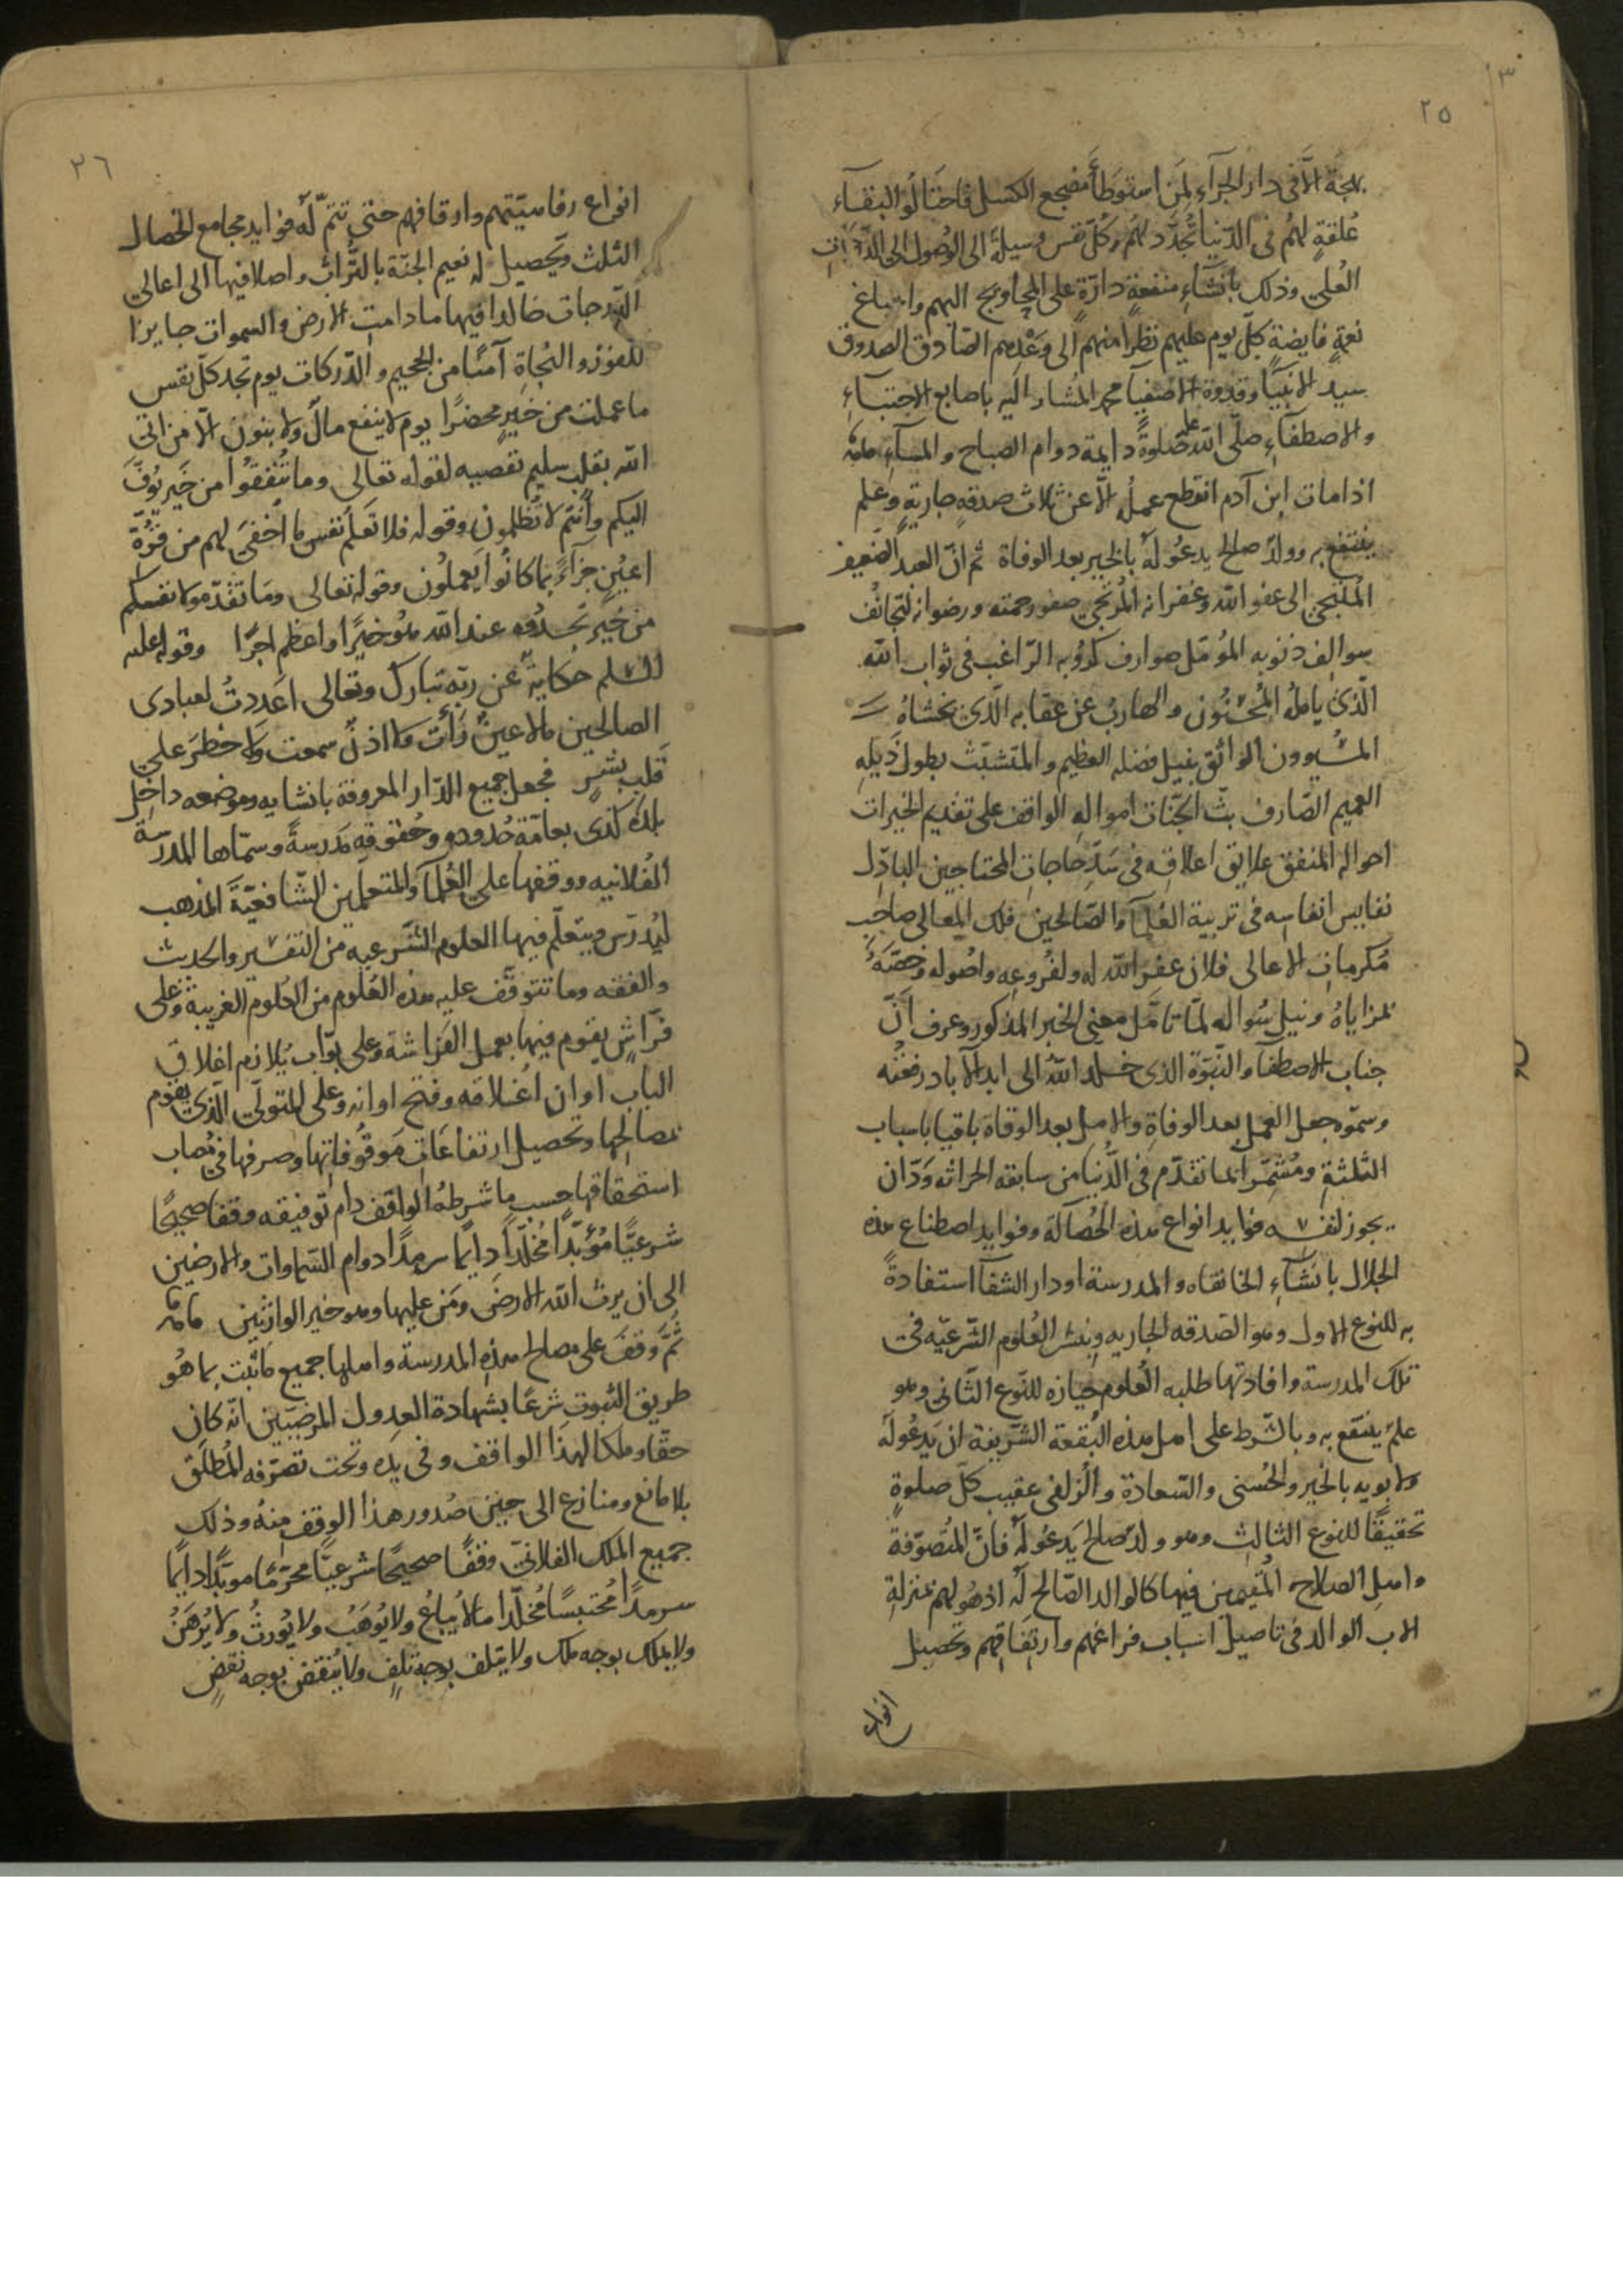 ٢٥
بهجة الّا فى دار الجزآء لمن استوطأ مضجع الكسل فاحتالوا البقآء
عُلقةٍ لهُم فى الدّنيا تُجدَّد لهُم كلّ نفس وسيلةً الى الوُصول الى
العُلى وذلك بانشآءِ منفعةٍ دارّةٍ على المحاويج اليهم
نعمةٍ فايضةٍ كلّ يوم عليهم نظرا منهم الى وعدهم الصّادق الصدوق
سيد الانبيآ وقدوة الاصفيآ محمد المُشار اليه باصابع الاجتبآءِ
والاصطفآءِ صلّى الله عليه صلوةً دايمة دوام الصباح والمسآءِ
اذا مات ابن آدم انقطع عملُه الّا عن ثلاث صدقةٍ جاريةٍ وعلم
ينتفع به وولدٍ صالح يدعُو لهُ بالخير بعد الوفاة ثم انّ العبد الضّعيف
المُلتجئ الى عفو الله وغفرانه المُرتجى صفو رحمته ورضوانه
سوالف ذنوبه المُؤمّل صوارف كروبه الرّاغب فى ثواب الله
الّذى يامله المُحسنُون والهارب عن عقابه الّذى يخشاهُ
المسيؤون الواثق بنيل فضله العظيم والمتشبّث بطول ذيله
العميم الصّارف بثّ امواله الواقف على تقديم الخيرات
احواله المنفق علايق اعلاقه فى سَدِّ حاجات المحتاجين الباذل
نفايس انفاسه فى تربية العُلمآ والصّالحين فلك المعالى صاحب
مكرمات الاعالى فلان غفر الله له ولفُروعِه واصُوله وخصّهُ
بمزاياهُ ونيل سُواله لمّا تأمّل معنى الخبر المذكور وعرف انّ
جناب الاصطفآ والنّبوّة الذى خلد اللهُ الى ابد الآباد رفعتُه
وسموّه جعل العمل بعد الوفاةِ والامل بعد الوفاة باقيا باسباب
الثّلثةِ ومُثمّرا لما تقدّم فى الدُّنيا من سابقة الحراثه وَدّ ان
يحوز لنفسه فوايد انواع هذه الخُصالة وفوايد اصطناع هذه
الجلال بانشآءِ الخانقاه والمدرسة او دار الشفآ استفادةً
به للنوع الاول وهو الصّدقه الجاريه وبنشر العُلوم الشّرعيّه فى
تلك المدرسة وافادتها طلبه العُلوم حيازه للنّوع الثّانى وهو
علمٌ ينتفع به وبالشّرط على اهل هذه البُقعة الشّريفة ان يَدعُو له
ولابويه بالخير والحُسنى والسّعادة والزلفى عقيب كلّ صلوةٍ
تحقيقًا للنوع الثالث وهو ولدٌ صالح يَدعُو لهُ فانَّ المُتصوّفة
واهل الصلاح المُقيمين فيها كالوالد الصّالح لهُ اذ هُو لهم بمنزلةِ
الاب الوالد فى تاصيل اسباب فراغهم وارتفاقهم وتحصيل
انواع
٢٦
انواع رفاهيّتهم وارفاقهم حتى تتمّ لهُ فوايد مجامع الخصال
الثلث وتحصيل له نعيم الجنّة بالتُّراث واصلا فيها الى اعالى
الدّرجات خالدا فيها ما دامت الارض والسموات جايزا
للفوز والنجاةِ آمنًا من الجحيم والدّركات يوم تجد كلّ نفس
ما عملت من خيرٍ محضرًا يوم لا ينفع مالٌ ولا بنون الّا من اتى
الله بقلب سليم تقصيه لقوله تعالى وما تُنفقُوا من خيرٍ يُوفَّ
اليكم وأنتم لا تُظلمون وقوله فلا تعلم نفس ما اُخفىَ لهم من قُرّة
اعيُنٍ جزآءً بما كانُوا يَعملُون وقوله تعالى ومَا تُقدّموا لانفسكم
من خيرٍ تجدُوه عند الله هُو خيرًا واعظم اجرًا وقوله عليه
السّلم حكايةً عن ربّه تبارك وتعالى اعددتُ لعبادى
الصالحين ما لا عينٌ رَأَت ولا اذنٌ سمعت ولا خطرَ على
قَلب بشرٍ فجعل جميع الدّار المعروفة بانشايه وموضعه داخل
بلدة كذى بعامّة حُدوده وحُقوقه مدرسةً وسمّاها المدرسة
الفُلانيه ووقفها على العُلمآ والمتعلّمين الشّافعيّة المذهب
ليُدرّس ويتعلّم فيها العلوم الشّرعيه من التفسير والحديث
والفقه وما تتوقّف عليه هذه العُلوم من العُلوم الغريبة وعلى
فرّاشٍ يقوم فيها بعمل الفراشة وعلى بوّاب يُلازم اغلاق
الباب اوان اغلاقه وفتح اوانه وعلى المتولّى الّذى يقوم
بمصالحها وتحصيل ارتفاعات موقُوفاتها وصرفها فى مصاب
استحقاقها حسب ما شرطهُ الواقف دام توفيقه وقفا صحيحًا
شرعيًّا مُؤبّدًا مُخلّدًا دايما سرمدًا دوام السّماوات والارضين
الى ان يرث الله الارضَ ومَن عليها وهو خير الوارثين
ثُمَّ وَقفَ على مصالح هذه المدرسة واهلها جميع ما ثبت بما هُو
طريق الثبوت شرعًا بشهادة العدول المرضيّين انّه كان
حقًّا وملكا لهذا الواقف وفى يده وتحت تصرّفه المُطلق
بلا مانع ومنازع الى حين صُدور هذا الوقف منهُ وذلك
جميع الملك الفلانىّ وقفًا صحيحًا شرعيًّا محرّمًا موبّدًا دايمًا
سرمدًا مُحتبسًا مُخلّدا ما لا يُباعُ ولا يُوهَبُ ولا يُورثُ ولا يُرهَنُ
ولا يملك بوجه ملك ولا يتلف بوجة تلفٍ ولا يُنقض بوجه نقضٍ